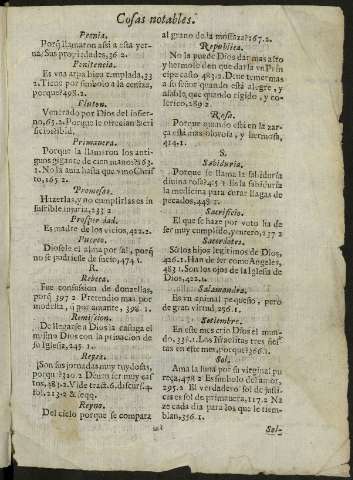 Cosas notables.
Peonia.
Porq̃ llamaron assi a esta yer-
va, Sus propiedades, 36.2.
Penitencia.
Es vna arpa bien templada, 33
2. Tiene por simbolo a la ceniza,
porque? 495.2.
Pluton.
Venerado por Dios del infier-
no, 65.2. Porque le ofrecian Sacri
ficio? ibid.
Primavera.
Porque la llamaron los anti-
guos gigante de cien manos? 163.
1. No la avia hasta que vino Chris
to, 165.2.
Promesas.
Hazerlas, y no cumplirlas es in
sufrible injuria, 233.2
Prosperidad.
Es madre de los vicios, 422.2.
Puerco.
Diosele el alma por sal, porq̃
no se pudriesse de sucio, 474.1.
R.
Rebeca.
Fue confusion de donzellas,
porq̃ 397 2 Pretendio mas por
modesta, q̃ por amante, 398.1.
Remission.
De llegarse a Dios la castiga el
mismo Dios con la privacion de
su Iglesia, 245.1.
Reyes.
Son sus jornadas muy ruydosas,
porque? 310.2 Deven ser muy cas
tos, 383.2. Vide tract. 6. discurs. 4.
fol. 213.2 & seqq.
Reyno.
Del cielo porque se compara
al grano de la mostaza? 167.2.
Republica.
No la puede Dios dar mas alto
y hermoso don que darla vn Prin
cipe casto 483.2. Deve temer mas
a su señor quando està alegre, y
afable, que quando rigido, y co-
lerico, 289 2.
Rosa.
Porque quando està en la zar-
ça està mas olorosa, y hermosa,
414.1.
S.
Sabiduria.
Porque se llama la sabiduria
divina rosa? 45.1 Es la sabiduria
la medicina para curar llagas de
pecados, 448 2.
Sacrificio.
El que se haze por voto ha de
ser muy cumplido, y entero, 237 2
Sacerdotes.
Sõ los hijos legitimos de Dios,
426.1. Han de ser como Angeles,
483 1. Son los ojos de la Iglesia de
Dios, 422.1.
Salamandra.
Es vn animal pequeño, pero
de gran virtud, 256.1.
Setiembre.
En este mes criò Dios el mun-
do, 331.1. Los Israelitas tres fies-
tas en este mes, porque? 366.1.
Sol.
Ama la luna por su virginal pu
reça, 478 2 Es simbolo del amor,
295.2. El verdadero sol de justi-
cia es sol de primavera, 117.2 Na
ze cada dia para los que le tiem-
blan, 356.1.
Sol-